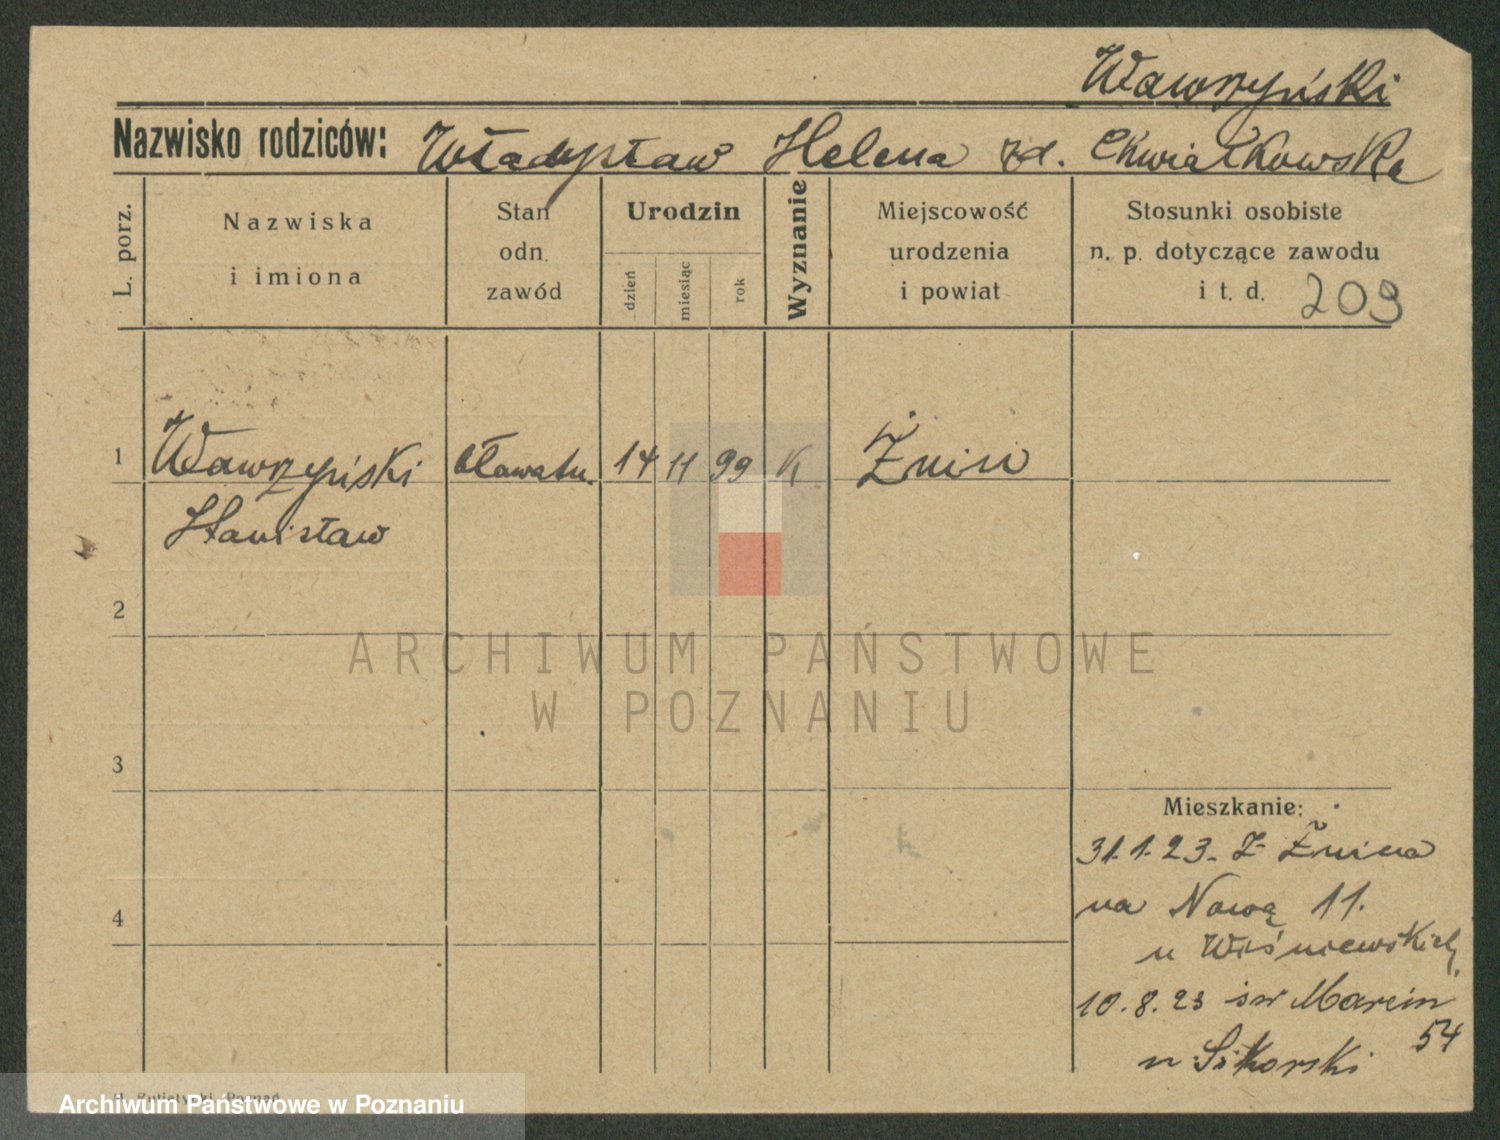 Wawrzyński
Nazwisko rodziców: Władysław Helena zd. Chwiałkowska
L. porz.
Nazwiska
i imiona
Stan
odn.
zawód
Urodzin
dzień
miesiąc
rok
Wyznanie
Miejscowość
urodzenia
i powiat
Stosunki osobiste
n. p. dotyczące zawodu
i t. d. 209
1 Wawrzyński bławatn. 14 11 99 K Żnin
Stanisław
2
ARCHIWUM PAŃSTWOWE
W POZNANIU
3
Mieszkanie:
31.1.23. Z Żnina
4
na Nową 11.
u Wiśniewskich
10.8.23 św Marcin
54
u Sikorski
Archiwum Państwowe w Poznaniu